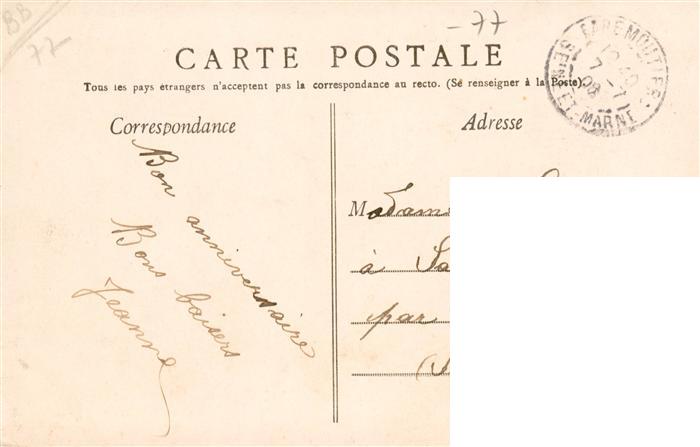 BB
77
-77
CARTE POSTALE
Tous les pays étrangers n'acceptent pas la correspondance au recto. (Se renseigner à la Poste).
FAREMOUTIERS
7 -7
08
SEINE-ET-MARNE
Correspondance
Adresse
Bon anniversaire
Bons baisers
Jeanne
Madame
à
par